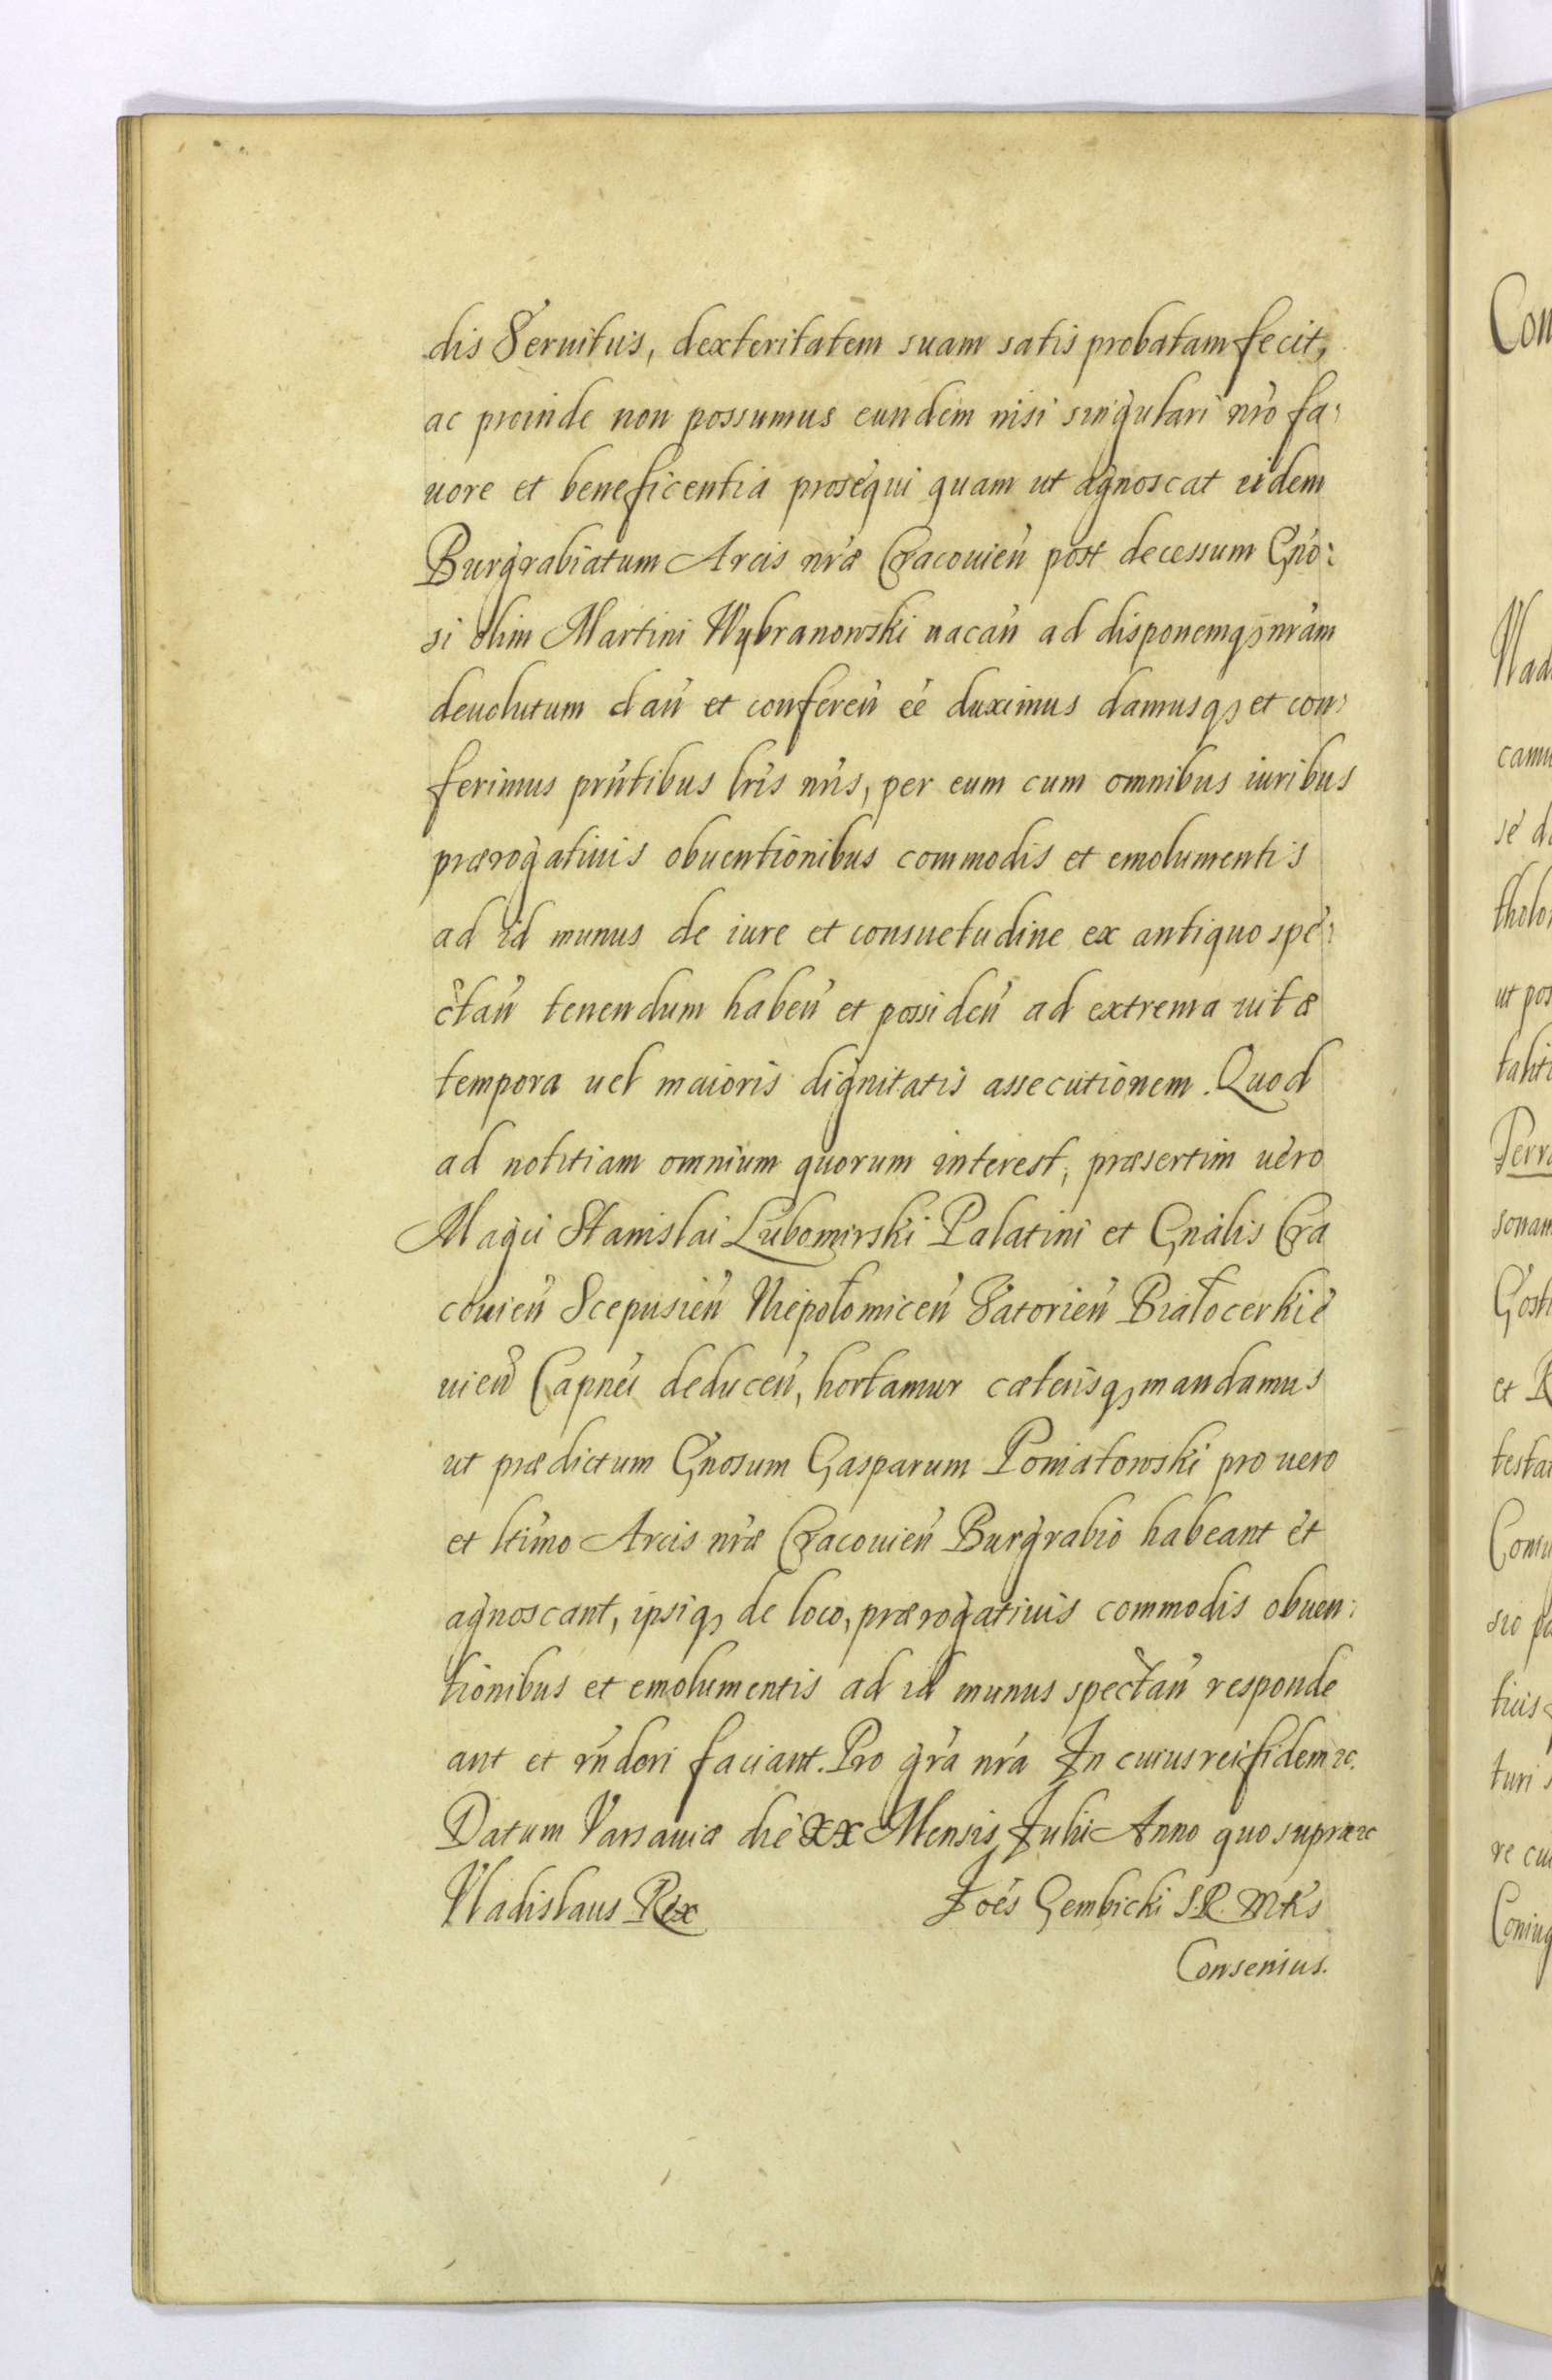 dis Seruitiis, dexteritatem suam satis probatam fecit,
ac proinde non possumus eundem nisi singulari nr̃o fa:
uore et beneficentia prosequi quam ut agnoscat eidem
Burgrabiatum Arcis nr̃æ Cracouien̄ post decessum Gn̄o:
si olim Martini Wybranowski uacan̄ ad disponemq₃ nr̃am
deuolutum dan̄ et conferen̄ eē duximus damusq₃ et con:
ferimus pr̃ntibus lr̃is nr̃is, per eum cum omnibus iuribus
prærogatiuis obuentionibus commodis et emolumentis
ad id munus de iure et consuetudine ex antiquo spe:
ctan̄ tenendum haben̄ et possiden̄ ad extrema uitæ
tempora uel maioris dignitatis assecutionem. Quod
ad notitiam omnium quorum interest, præsertim uero
Magci Stanislai Lubomirski Palatini et Gnãlis Cra
couien̄ Scepusien̄ Niepołomicen̄ Zatorien̄ Białocerkie
uien̄ Capnei deducen̄, hortamur cæterisq₃ mandamus
ut prædictum Gn̄osum Gasparum Poniatowski pro uero
et ltimo Arcis nr̃æ Cracouien̄ Burgrabio habeant et
agnoscant, ipsiq₃ de loco, prærogatiuis commodis obuen:
tionibus et emolumentis ad id munus spectan̄ responde
ant et rn̄deri faciant. Pro gr̃a nr̃a In cuius rei fidem ꝛc.
Datum Varsauiæ die XX Mensis Julii Anno quo supra ꝛc
Vladislaus Rex Joẽs Gembicki S.R. Mtis
Consensus.
Con
Wlad
camu
se d
tholo
ut pos
taliti
Perr
sonam
Gost
et R
testa
Consu
sio pa
tiis
turi s
re cui
Coniug